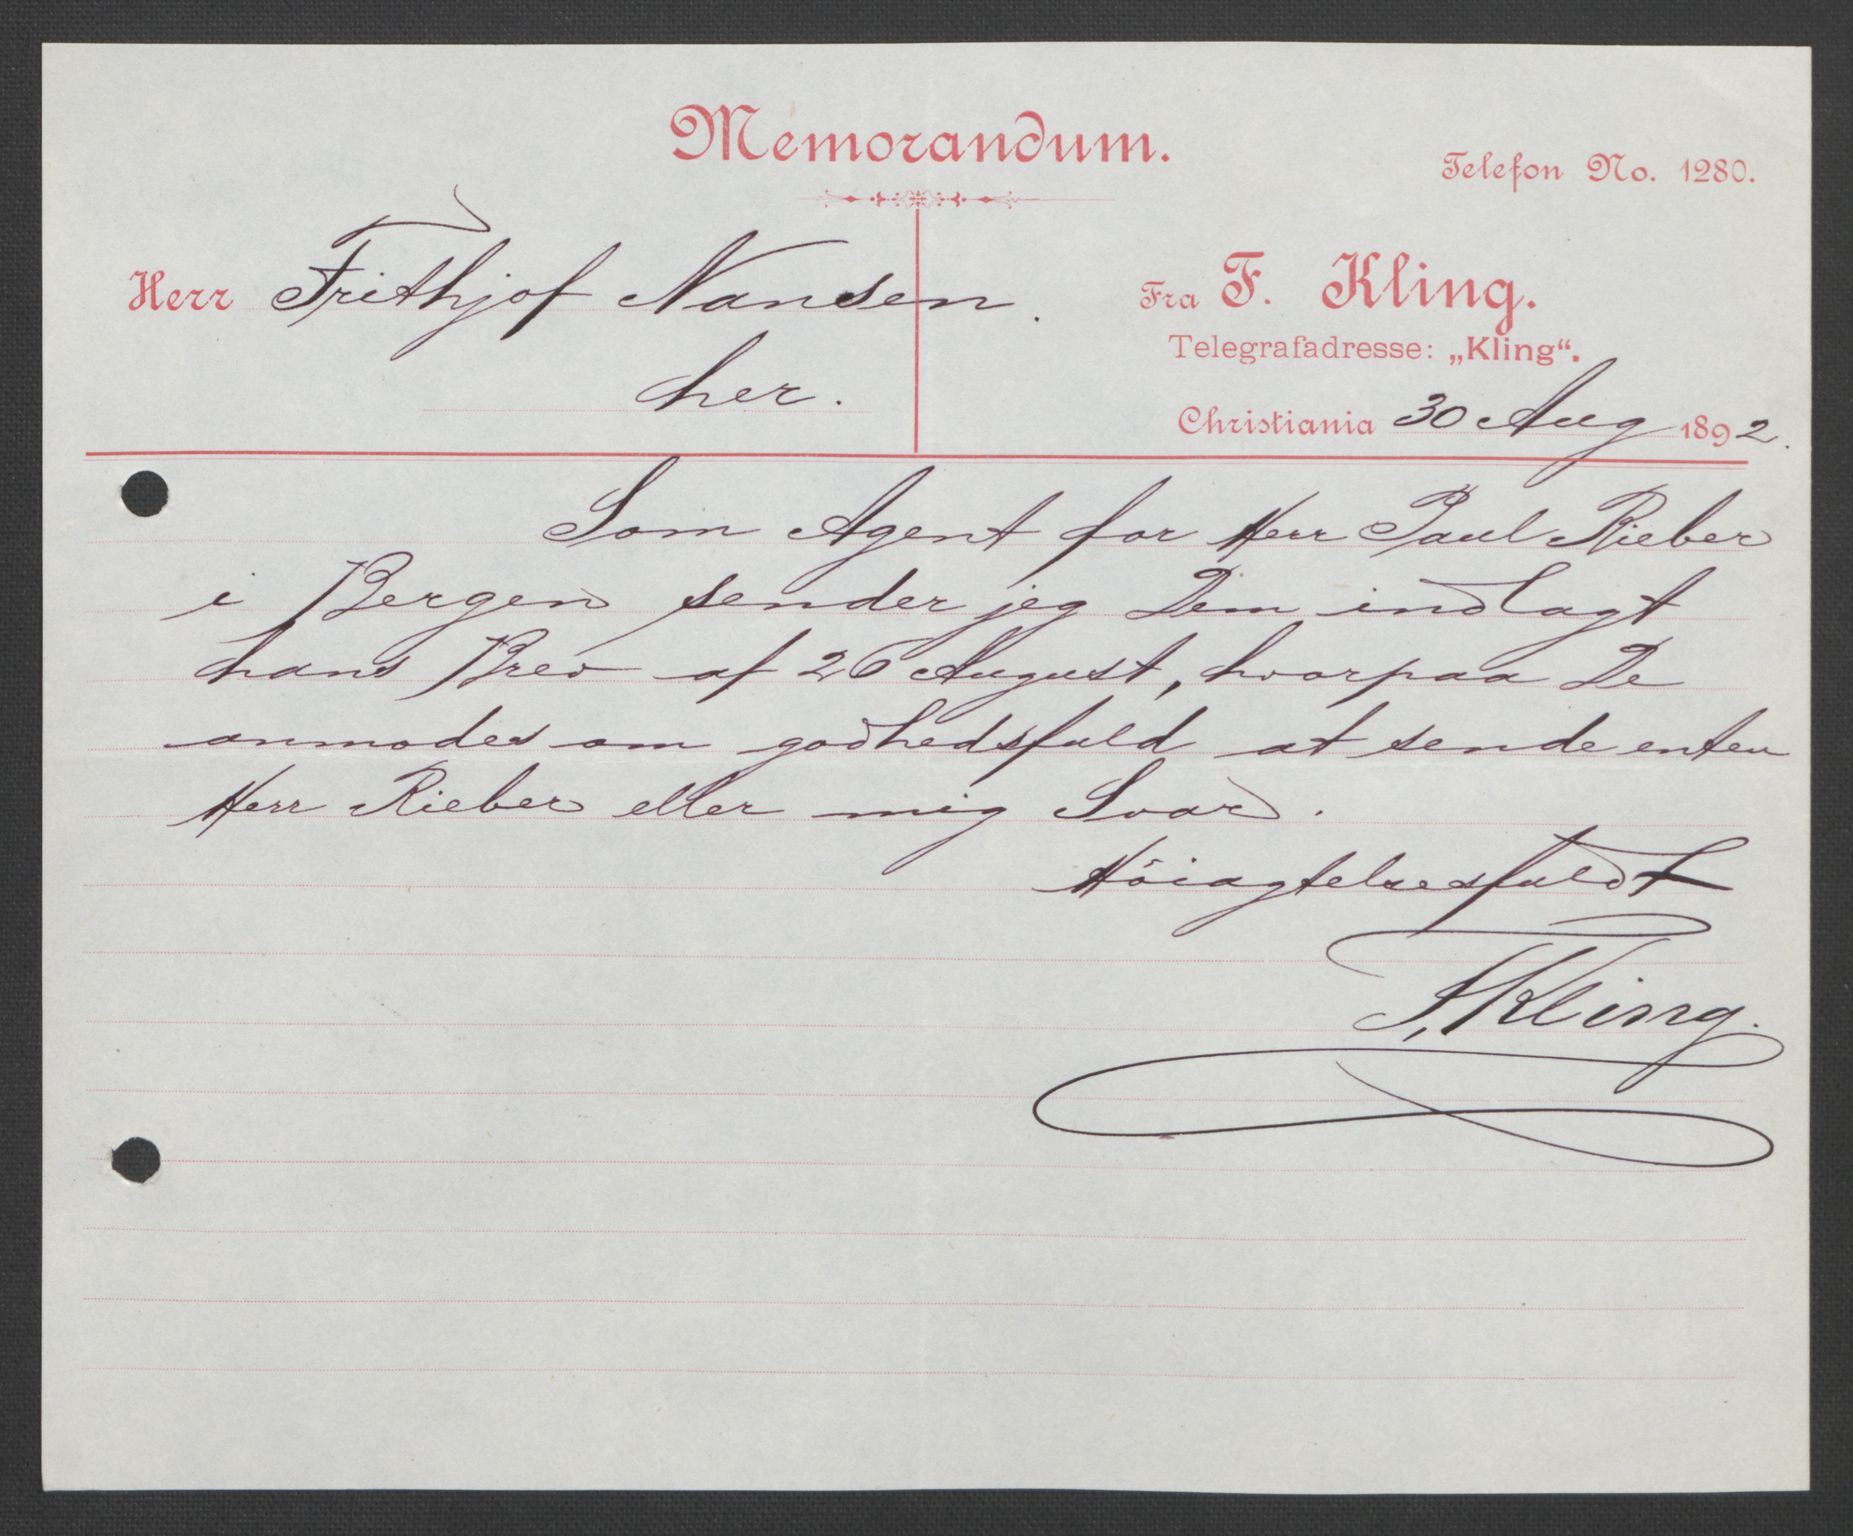 Memorandum.
Telefon No. 1280.
Herr Frithjof Nansen.
her.
Fra F. Kling.
Telegrafadresse: „Kling“.
Christiania 30 Aug 1892.
Som Agent for Herr Paul Rieber
i Bergen sender jeg Dem indlagt
hans Brev af 26 August, hvorpaa De
anmodes om godhedsfuld at sende enten
Herr Rieber eller mig Svar.
Höiagtelsesfuldt
F. Kling.